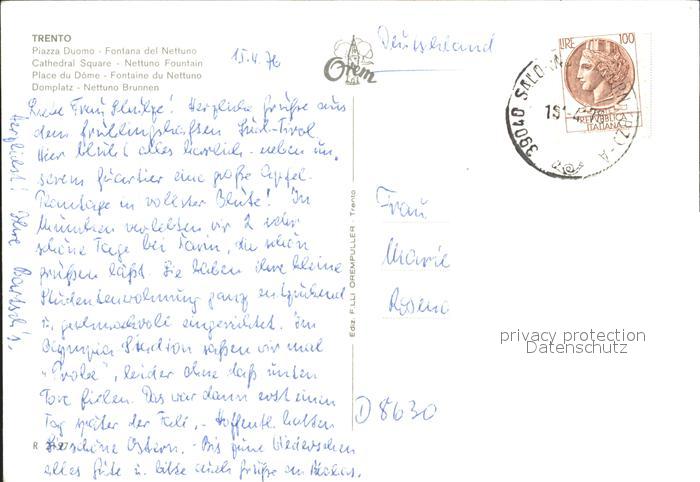 TRENTO
Piazza Duomo - Fontana del Nettuno
Cathedral Square - Nettuno Fountain
Place du Dôme - Fontaine du Nettuno
Domplatz - Nettuno Brunnen
15.4.76
Orem
Deutschland
LIRE 100
REPVBBLICA
ITALIANA
39040 SALORNO
Liebe Frau! Herzliche Grüße aus
dem frühlingshaften Süd-Tirol.
Hier blüht alles herrlich - neben un-
serem Quartier eine große Apfel-
Plantage in vollster Blüte! In
München verlebten wir 2 sehr
schöne Tage bei, die schön
grüßen läßt. Sie haben ihre kleine
Studentenwohnung ganz entzückend
u. geschmackvoll eingerichtet. Im
Olympia Stadion saßen wir mal
"Probe", leider ohne daß unten
Tore fielen. Das war dann erst einen
Tag später der Fall. - Hoffentl. hatten
Sie schöne Ostern. - Bis zum Wiedersehen
alles Gute u. bitte auch Grüße an
Herzlichst! Ihre Bartsch's.
Ediz. F.LLI OREMPULLER - Trento
Frau
Marie
D 8630
privacy protection
Datenschutz